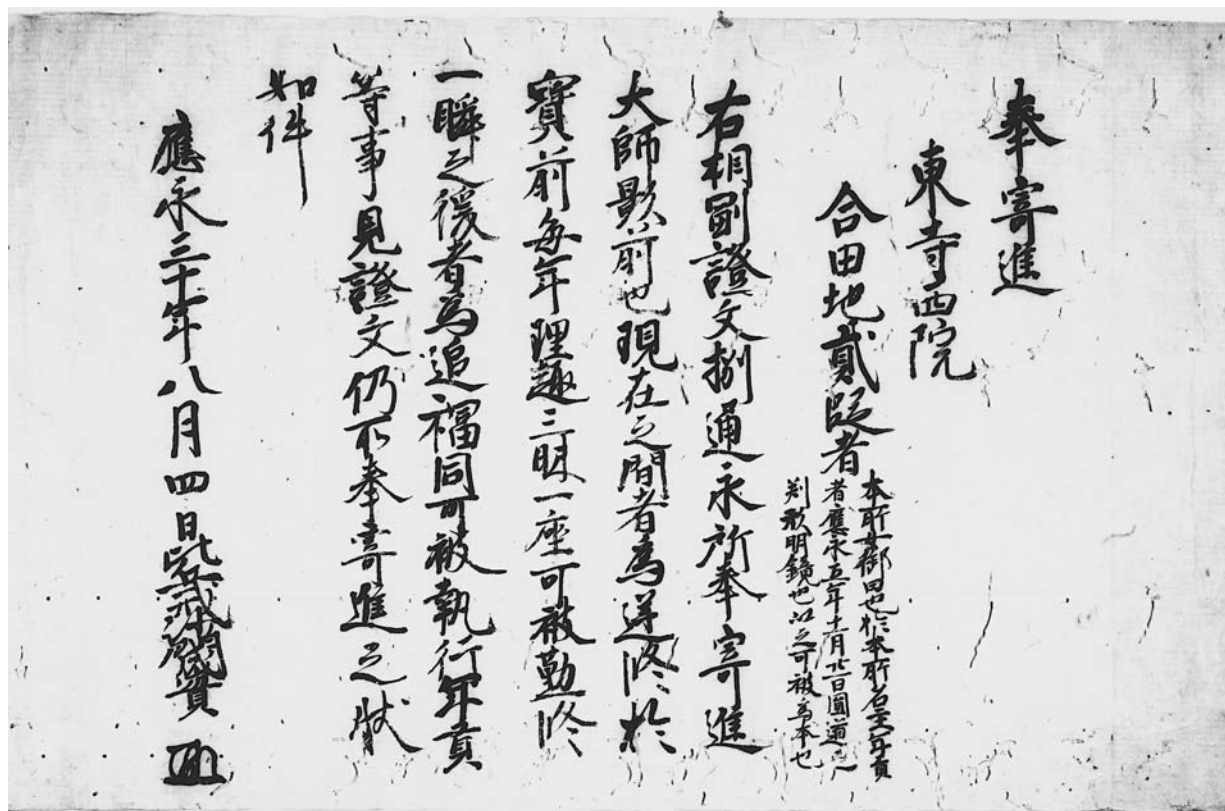 奉寄進
東寺西院
合田地貳段者
本所女御田也於本所名主年貢
者應永五年十一月廿一日圓通
判形明鏡也以之可被為本也
右相副證文捌通永所奉寄進
大師影前也現在之間者為逆修於
寶前毎年理趣三昧一座可被勤修
一瞬之後者為追福同可被執行年貢
等事見證文仍所奉寄進之狀
如件
應永三十年八月四日